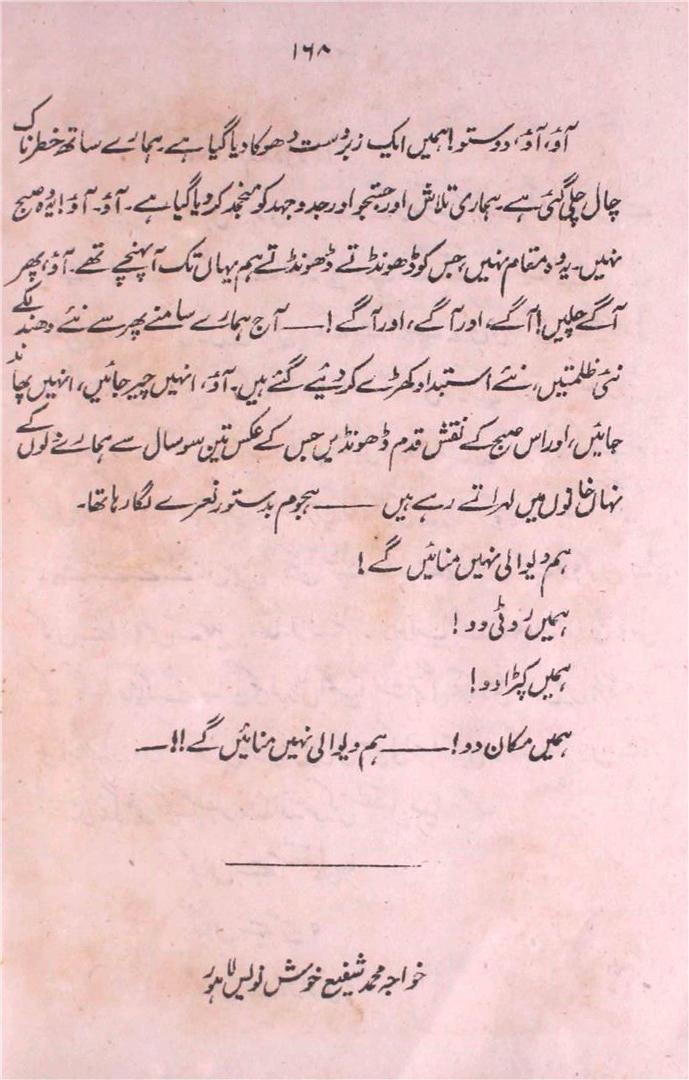 ۱۶۸
آؤ، آؤ، دوستو! ہمیں ایک زبردست دھوکا دیا گیا ہے۔ ہمارے ساتھ خطرناک
چال چلی گئی ہے۔ ہماری تلاش اور جستجو اور جدوجہد کو منجمد کر دیا گیا ہے۔ آؤ۔ آؤ! یہ وہ صبح
نہیں۔ یہ وہ مقام نہیں، جس کو ڈھونڈتے ڈھونڈتے ہم یہاں تک آ پہنچے تھے۔ آؤ، پھر
آگے چلیں! آگے، اور آگے، اور آگے! —— آج ہمارے سامنے پھر سے نئے دھندلکے
نئی ظلمتیں، نئے استبداد کھڑے کر دئیے گئے ہیں۔ آؤ، انہیں چیر جائیں، انہیں پھاند
جائیں، اور اس صبح کے نقش قدم ڈھونڈیں جس کے عکس تین سو سال سے ہمارے دلوں کے
نہاں خانوں میں لہراتے رہے ہیں —— ہجوم بدستور نعرے لگا رہا تھا۔
ہم دیوالی نہیں منائیں گے!
ہمیں روٹی دو!
ہمیں کپڑا دو!
ہمیں مکان دو! —— ہم دیوالی نہیں منائیں گے!!—
خواجہ محمد شفیع خوش نویس لاہور